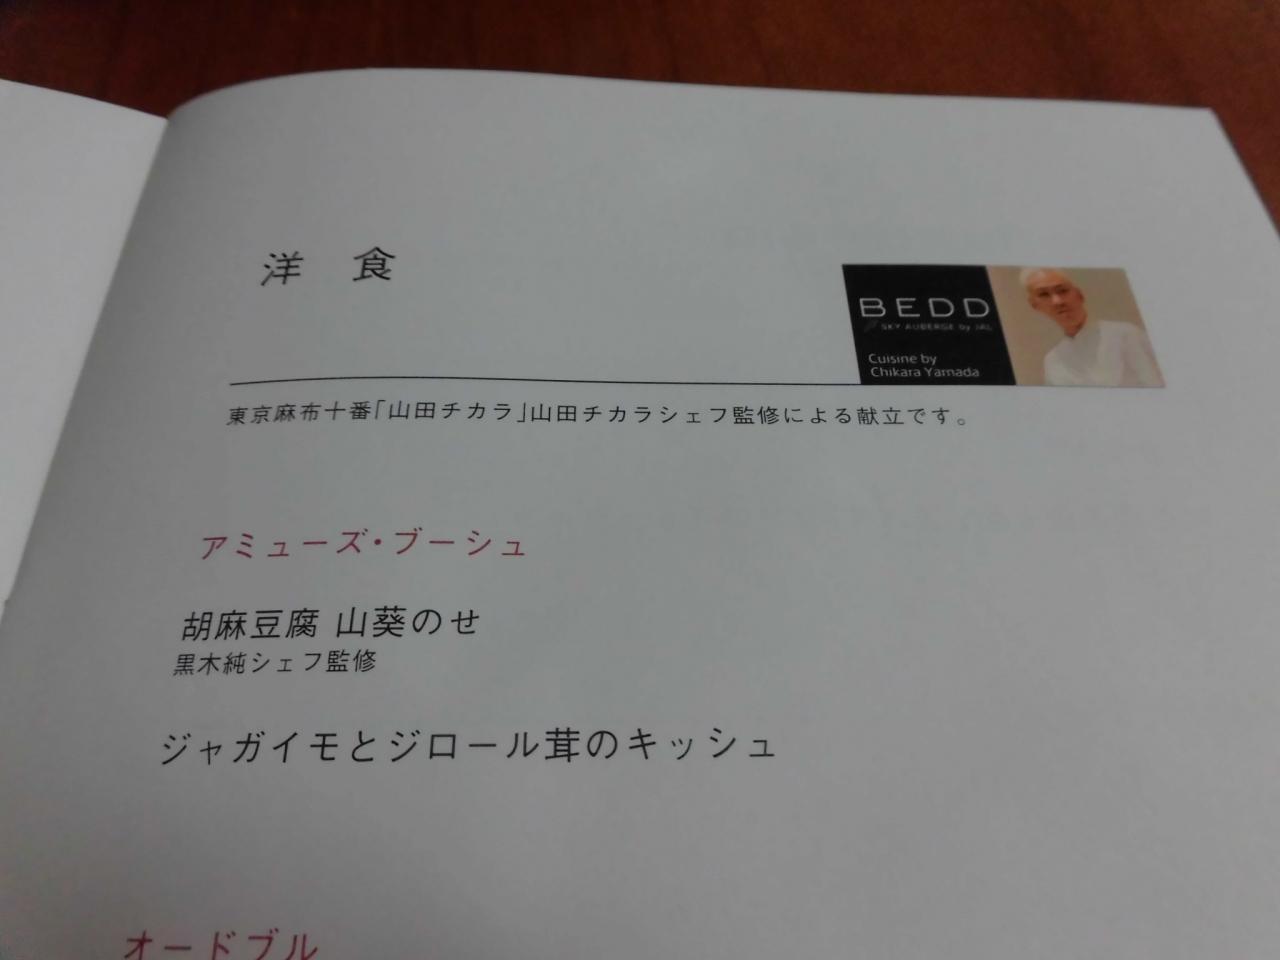 洋 食
BEDD
SKY AUBERGE by JAL
Cuisine by
Chikara Yamada
東京麻布十番「山田チカラ」山田チカラシェフ監修による献立です。
アミューズ・ブーシュ
胡麻豆腐 山葵のせ
黒木純シェフ監修
ジャガイモとジロール茸のキッシュ
オードブル